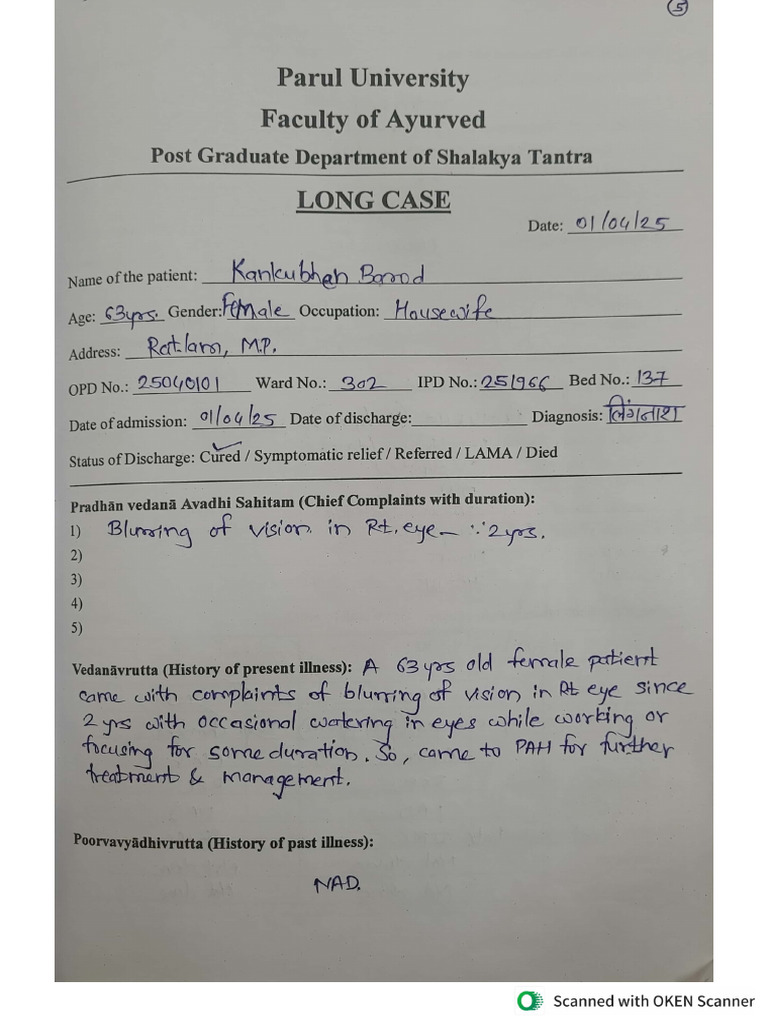 5
Parul University
Faculty of Ayurved
Post Graduate Department of Shalakya Tantra
LONG CASE
Date: 01/04/25
Name of the patient: Kankubhen Barod
Age: 63yrs. Gender: Female Occupation: Housewife
Address: Ratlam, M.P.
OPD No.: 25040101 Ward No.: 302 IPD No.: 251966 Bed No.: 137
Date of admission: 01/04/25 Date of discharge: Diagnosis: लिंगनाश
Status of Discharge: Cured / Symptomatic relief / Referred / LAMA / Died
Pradhān vedanā Avadhi Sahitam (Chief Complaints with duration):
1) Blurring of vision in Rt. eye – ∵ 2yrs.
2)
3)
4)
5)
Vedanāvrutta (History of present illness): A 63yrs old female patient
came with complaints of blurring of vision in Rt eye since
2 yrs with occasional watering in eyes while working or
focusing for some duration. So, came to PAH for further
treatment & management.
Poorvavyādhivrutta (History of past illness):
NAD.
Scanned with OKEN Scanner